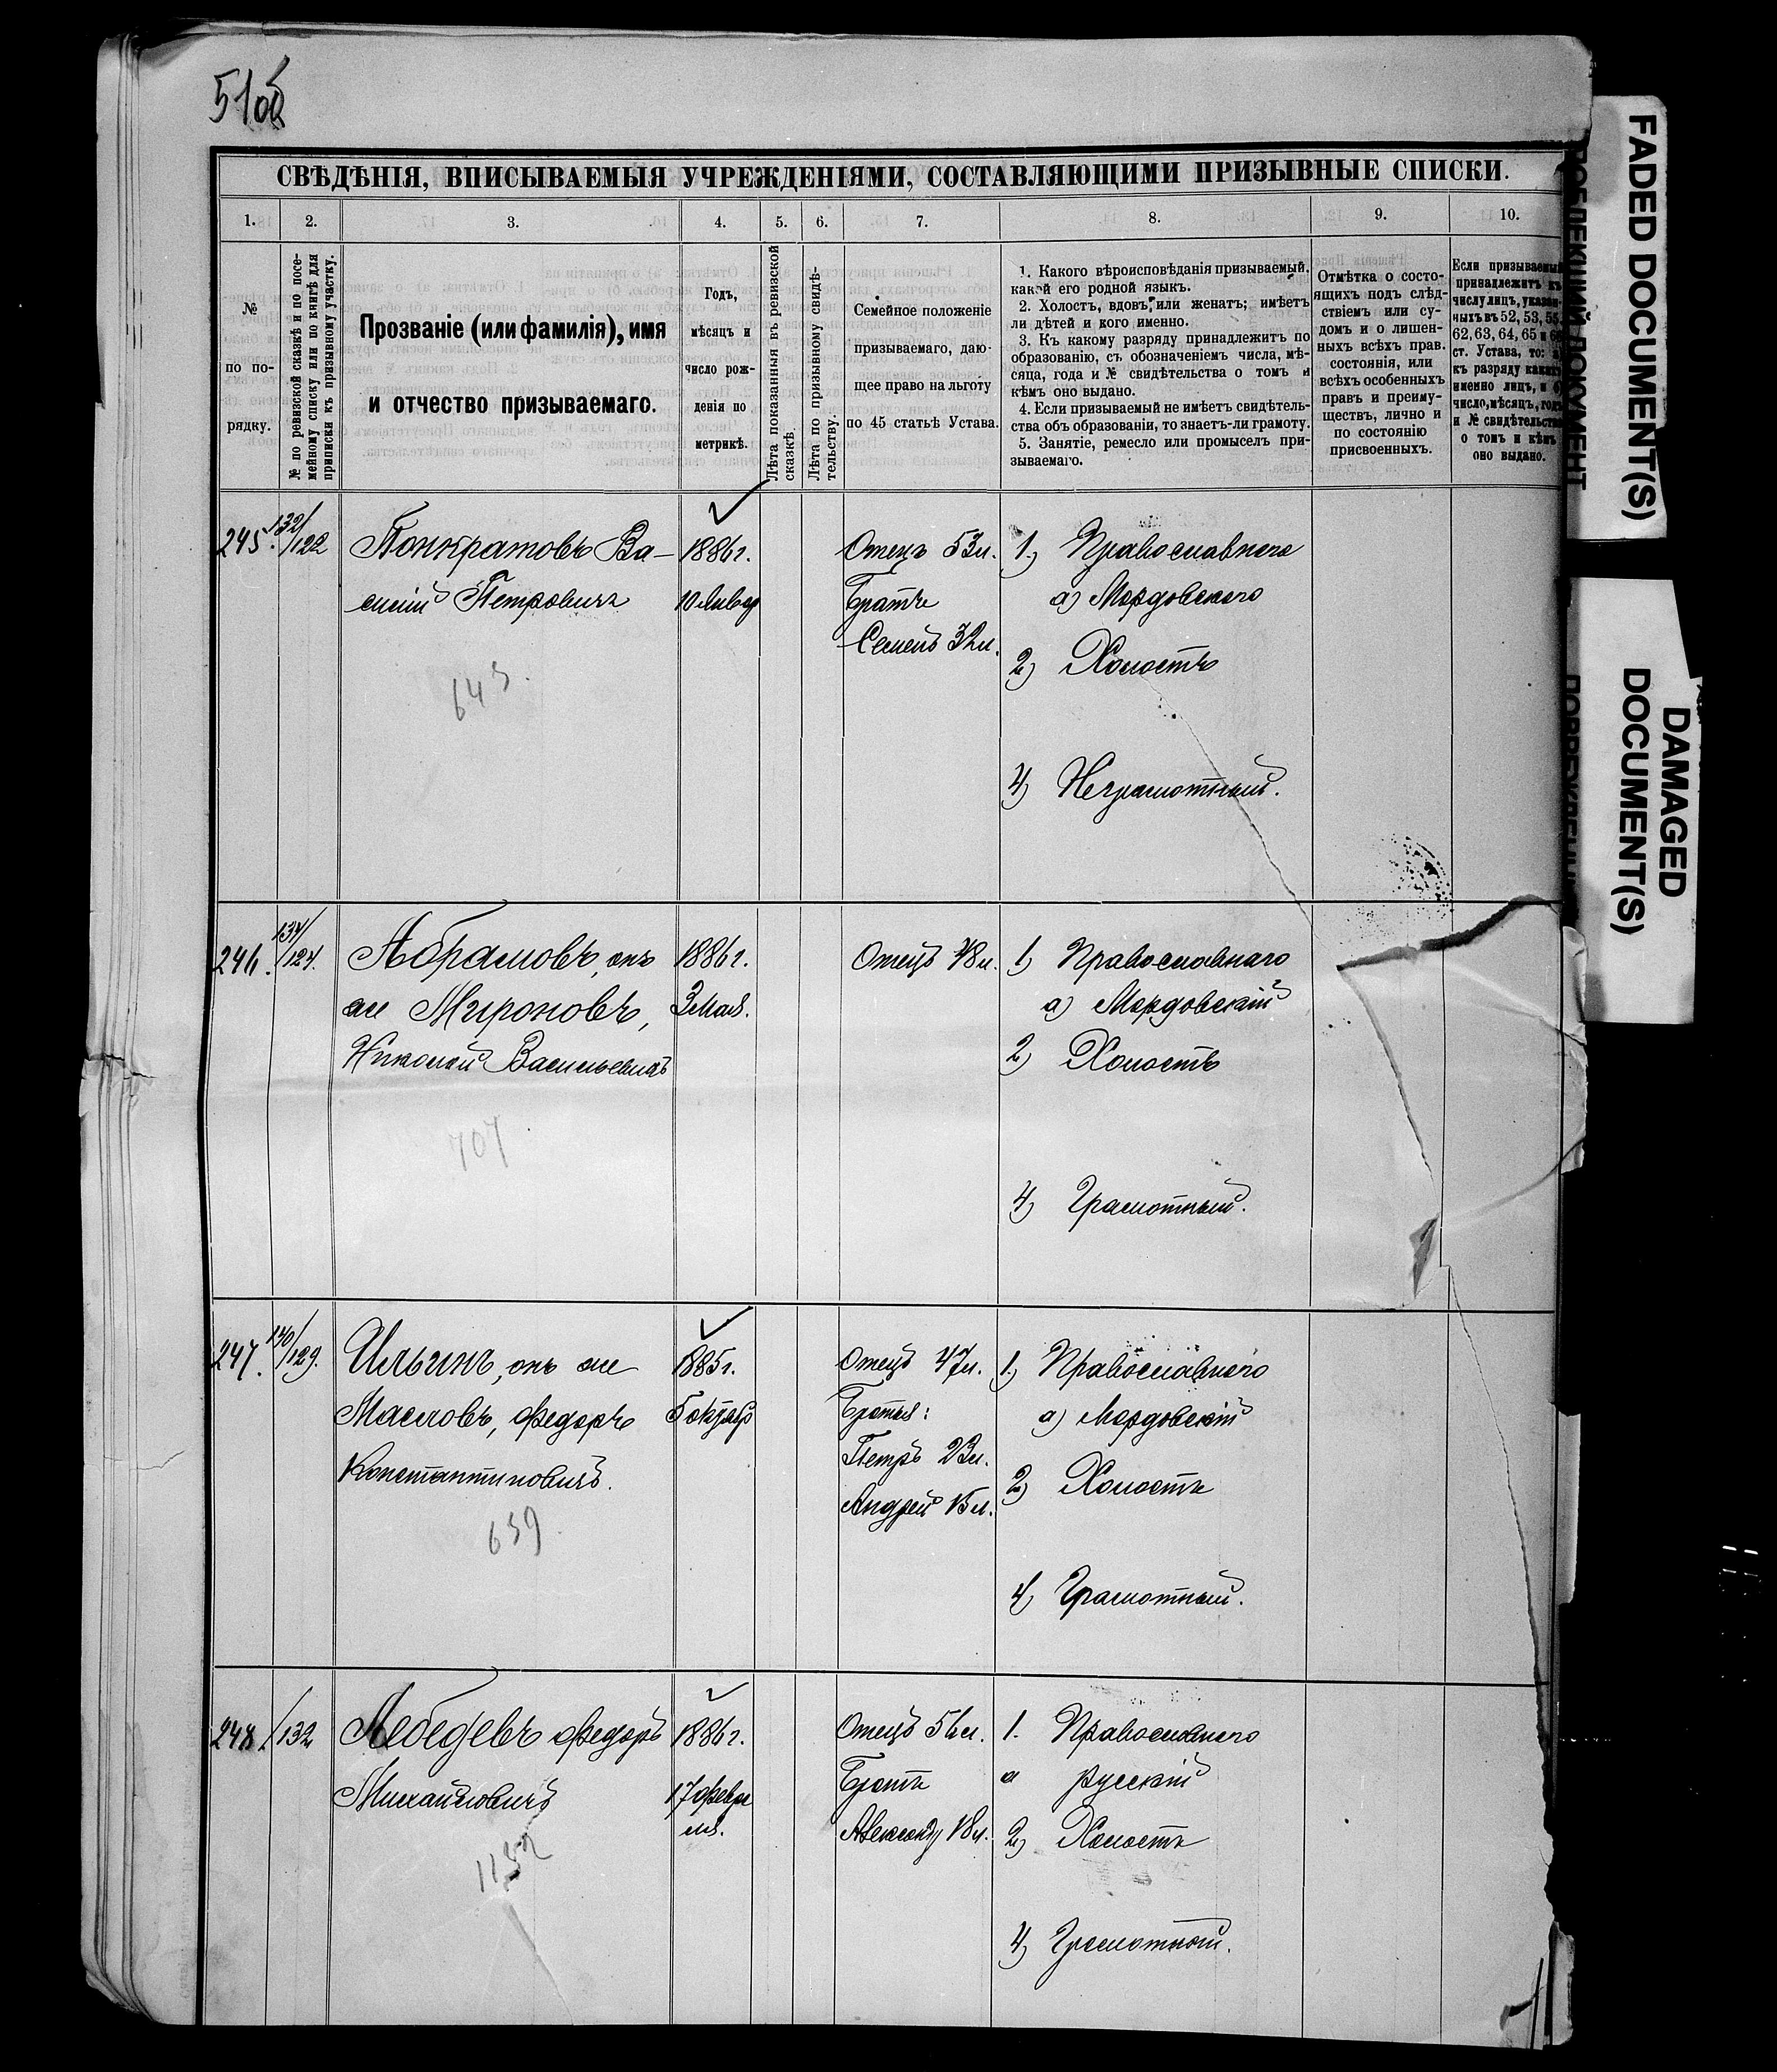 51об
СВѢДѢНІЯ, ВПИСЫВАЕМЫЯ УЧРЕЖДЕНІЯМИ, СОСТАВЛЯЮЩИМИ ПРИЗЫВНЫЕ СПИСКИ.
1. 2. 3. 4. 5. 6. 7. 8. 9. 10.
№
по по-
рядку.
№ по ревизской сказкѣ и по посе-
мейному списку или по книгѣ для
приписки къ призывному участку.
Прозваніе (или фамилія), имя
и отчество призываемаго.
Годъ,
мѣсяцъ и
число рож-
денія по
метрикѣ.
Лѣта показанныя въ ревизской
сказкѣ.
Лѣта по призывному свидѣ-
тельству.
Семейное положеніе
призываемаго, даю-
щее право на льготу
по 45 статьѣ Устава.
1. Какого вѣроисповѣданія призываемый.
какой его родной языкъ.
2. Холостъ, вдовъ, или женатъ; имѣетъ
ли дѣтей и кого именно.
3. Къ какому разряду принадлежитъ по
образованію, съ обозначеніемъ числа, мѣ-
сяца, года и № свидѣтельства о томъ и
кѣмъ оно выдано.
4. Если призываемый не имѣетъ свидѣтель-
ства объ образованіи, то знаетъ-ли грамоту.
5. Занятіе, ремесло или промыселъ при-
зываемаго.
Отмѣтка о состо-
ящихъ подъ слѣд-
ствіемъ или су-
домъ и о лишен-
ныхъ всѣхъ прав.
состоянія, или
всѣхъ особенныхъ
правъ и преиму-
ществъ, лично и
по состоянію
присвоенныхъ.
Если призываемый
принадлежитъ къ
числу лицъ, указан-
ныхъ въ 52, 53, 55,
62, 63, 64, 65 и
ст. Устава, то: а)
къ разряду какихъ
именно лицъ, и б)
число, мѣсяцъ, годъ
и № свидѣтельства
о томъ и кѣмъ
оно выдано.
245. 132/122
Понкратовъ Ва-
силій Петровичъ
643.
1886 г.
10 Январ
Отецъ 53 л.
Братъ
Семенъ 32 л.
1) Православнаго
а) Мордовскаго
2) Холостъ
4) Неграмотный.
246. 134/124.
Абрамовъ, онъ
же Мироновъ,
Николай Васильевичъ
707
1886 г.
3 Мая.
Отецъ 48 л.
1) Православнаго
а) Мордовскій
2) Холостъ
4) Грамотный.
247. 140/129.
Ильинъ, онъ же
Масловъ, Федоръ
Константиновичъ.
639
1885 г.
5 октября
Отецъ 47 л.
Братья:
Петръ 23 л.
Андрей 15 л.
1) Православнаго
а) Мордовскій
2) Холостъ
4) Грамотный.
248. /132
Лебедевъ Федоръ
Михайловичъ
1152
1886 г.
17 февра
ля.
Отецъ 56 л.
Братъ
Александр 18 л.
1. Православнаго
а русскій
2) Холостъ
4) Грамотный.
FADED DOCUMENT(S)
DAMAGED
DOCUMENT(S)